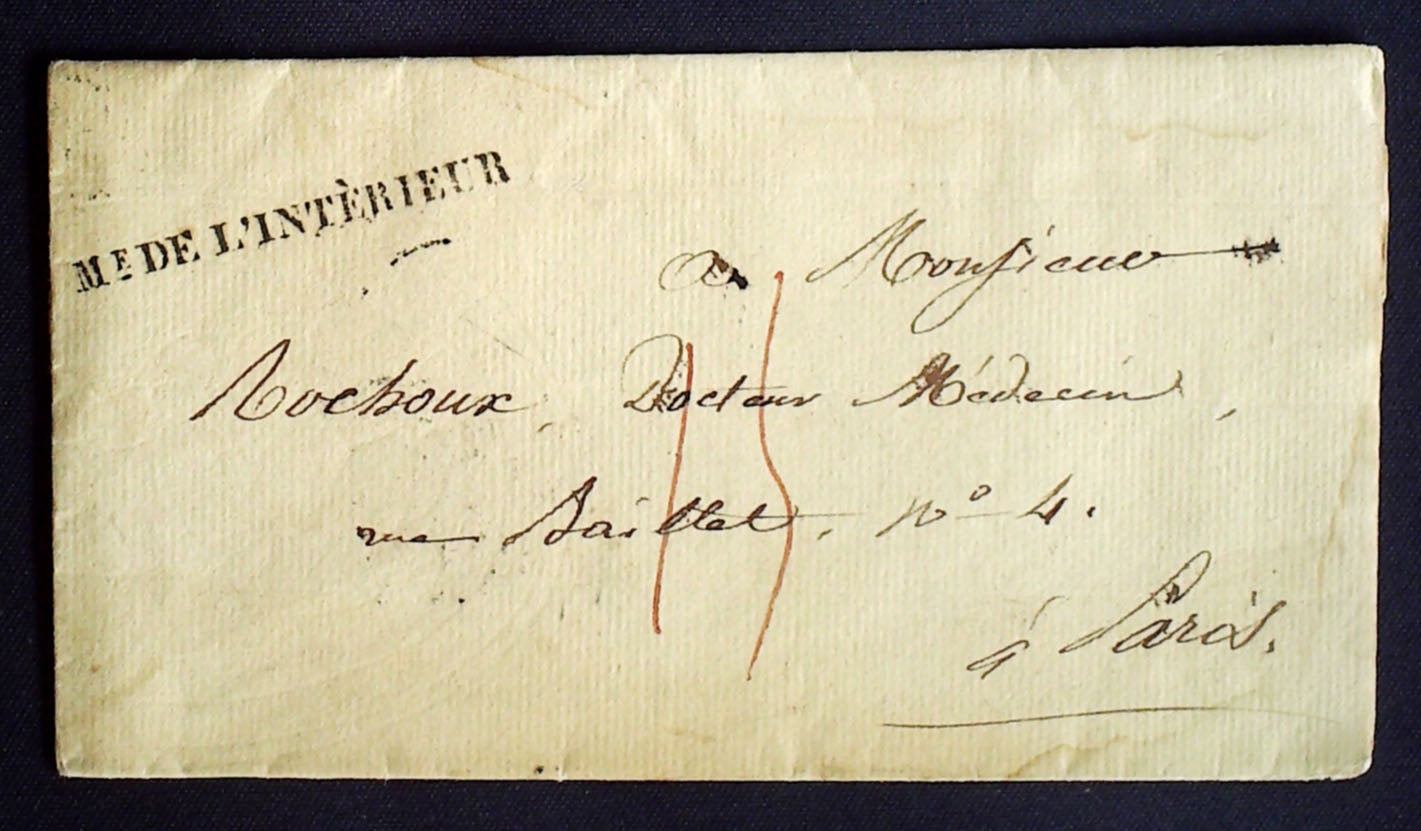 Me DE L'INTÈRIEUR
a Monsieur
Rochoux, Docteur Médecin,
rue Baillet, No 4.
à Paris.